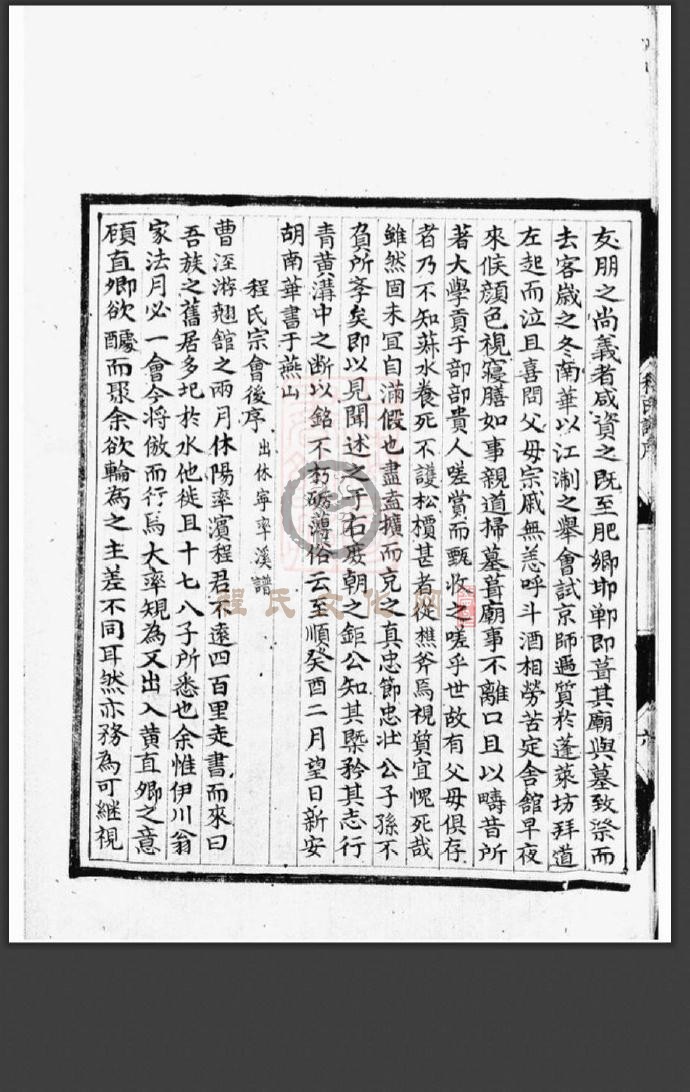 友朋之尚義者咸資之既至肥鄉邯鄲即葺其廟與墓致祭而
去客歲之冬南華以江淛之舉會試京師過質扵蓬萊坊拜道
左起而泣且喜問父母宗戚無恙呼斗酒相勞苦定舍館早夜
來候顏色視寢膳如事親道掃墓葺廟事不離口且以疇昔所
著大學貢于部部貴人嗟賞而甄收之嗟乎世故有父母俱存
者乃不知菽水養死不護松檟甚者從樵斧焉視質宜愧死哉
雖然固未宜自滿假也盡盍擴而充之真忠節忠壯公子孫不
負所孝矣即以見聞述之于右庶朝之鉅公知其槩矜其志行
青黃溝中之斷以銘不朽砺薄俗云至順癸酉二月望日新安
胡南華書于燕山
程氏宗會後序 出休寧率溪譜
曹涇游翹舘之兩月休陽率濱程君不遠四百里走書而來曰
吾族之舊居多圮於水他徙且十七八子所悉也余惟伊川翁
家法月必一會今將倣而行焉大率規為又出入黃直卿之意
頋直卿欲醵而聚余欲輪為之主差不同耳然亦務為可継視
程氏譜序
六
程氏文化网